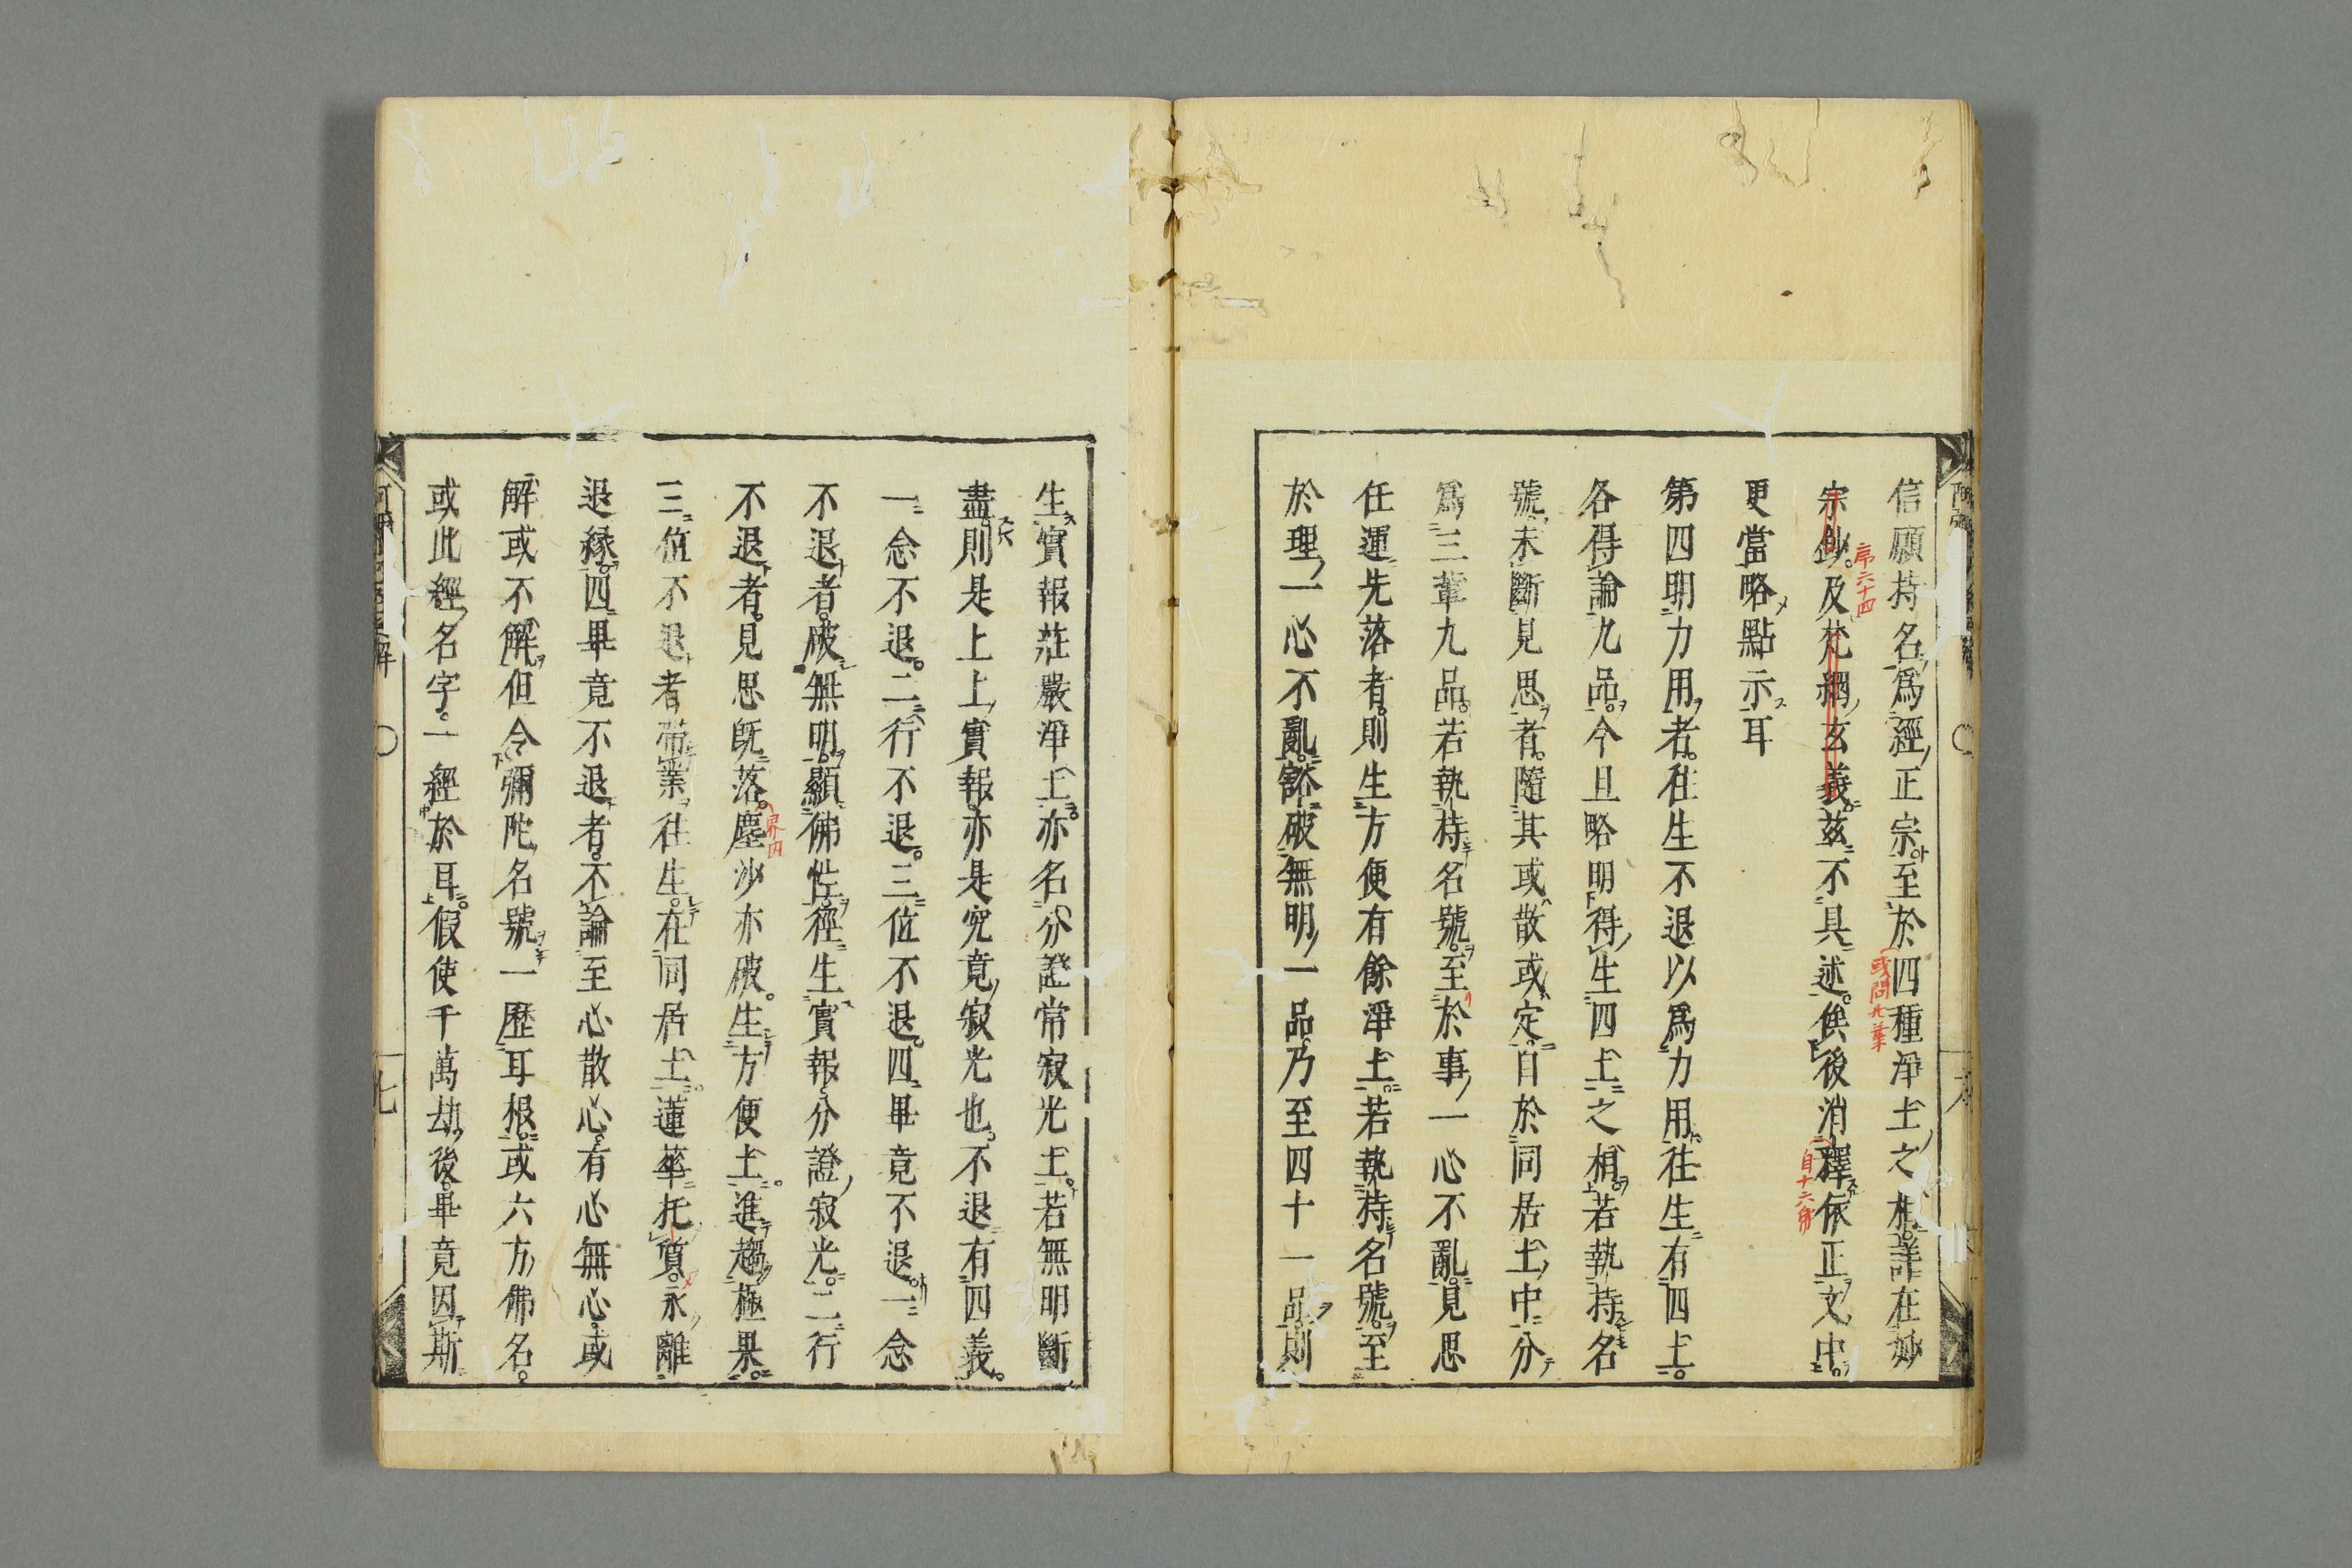 信願持名爲經正宗至於四種淨土之相詳在妙
宗鈔及梵網玄義玆不具述俟後消釋依正文中
更當略點示耳
第四明力用者往生不退以爲力用往生有四土
各得論九品今且略明得生四土之相若執持名
號未斷見思者隨其或散或定自於同居土中分
爲三輩九品若執持名號至於事一心不亂見思
任運先落者則生方便有餘淨土若執持名號至
於理一心不亂豁破無明一品乃至四十一品則
序六十四
或問九葉
自十六第
生實報莊嚴淨土亦名分證常寂光土若無明斷
盡則是上上實報亦是究竟寂光也不退有四義
一念不退二行不退三位不退四畢竟不退一念
不退者破無明顯佛性徑生實報分證寂光二行
不退者見思旣落塵沙亦破生方便土進趨極果
三位不退者帶業往生在同居土蓮華托質永離
退緣四畢竟不退者不論至心散心有心無心或
解或不解但令彌陀名號一歷耳根或六方佛名
或此經名字一經於耳假使千萬劫後畢竟因斯
界内